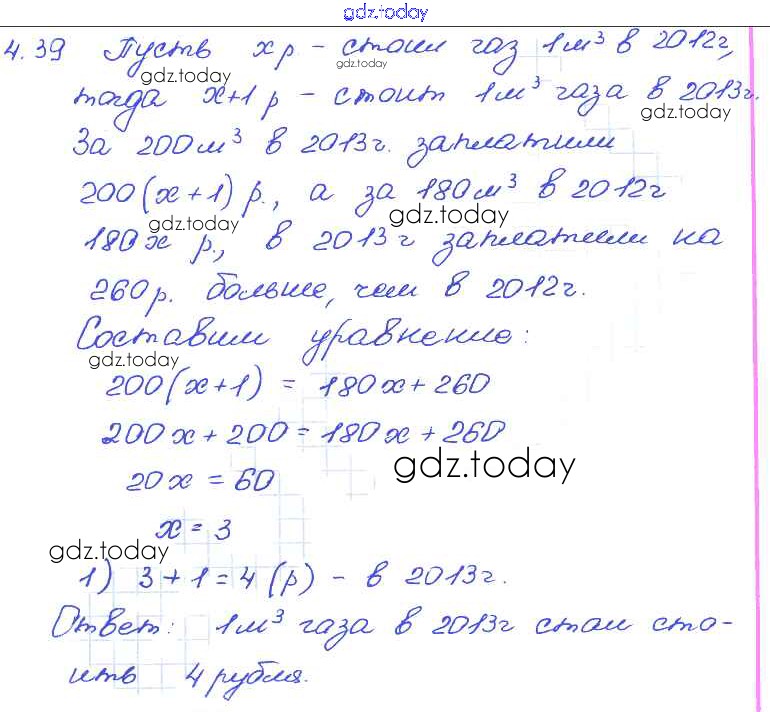 gdz.today
4.39 Пусть x р - стоил газ 1м³ в 2012г,
gdz.today
gdz.today
тогда x+1 р - стоит 1м³ газа в 2013г.
gdz.today
За 200м³ в 2013г. заплатили
200(x+1) р., а за 180м³ в 2012г
gdz.today
gdz.today
180x р., в 2013г заплатили на
260р. больше, чем в 2012г.
Составим уравнение:
gdz.today
200(x+1) = 180x+260
200x+200=180x+260
gdz.today
20x = 60
x = 3
gdz.today
1) 3+1=4 (р) - в 2013г.
Ответ: 1м³ газа в 2013г стал сто-
ить 4 рубля.